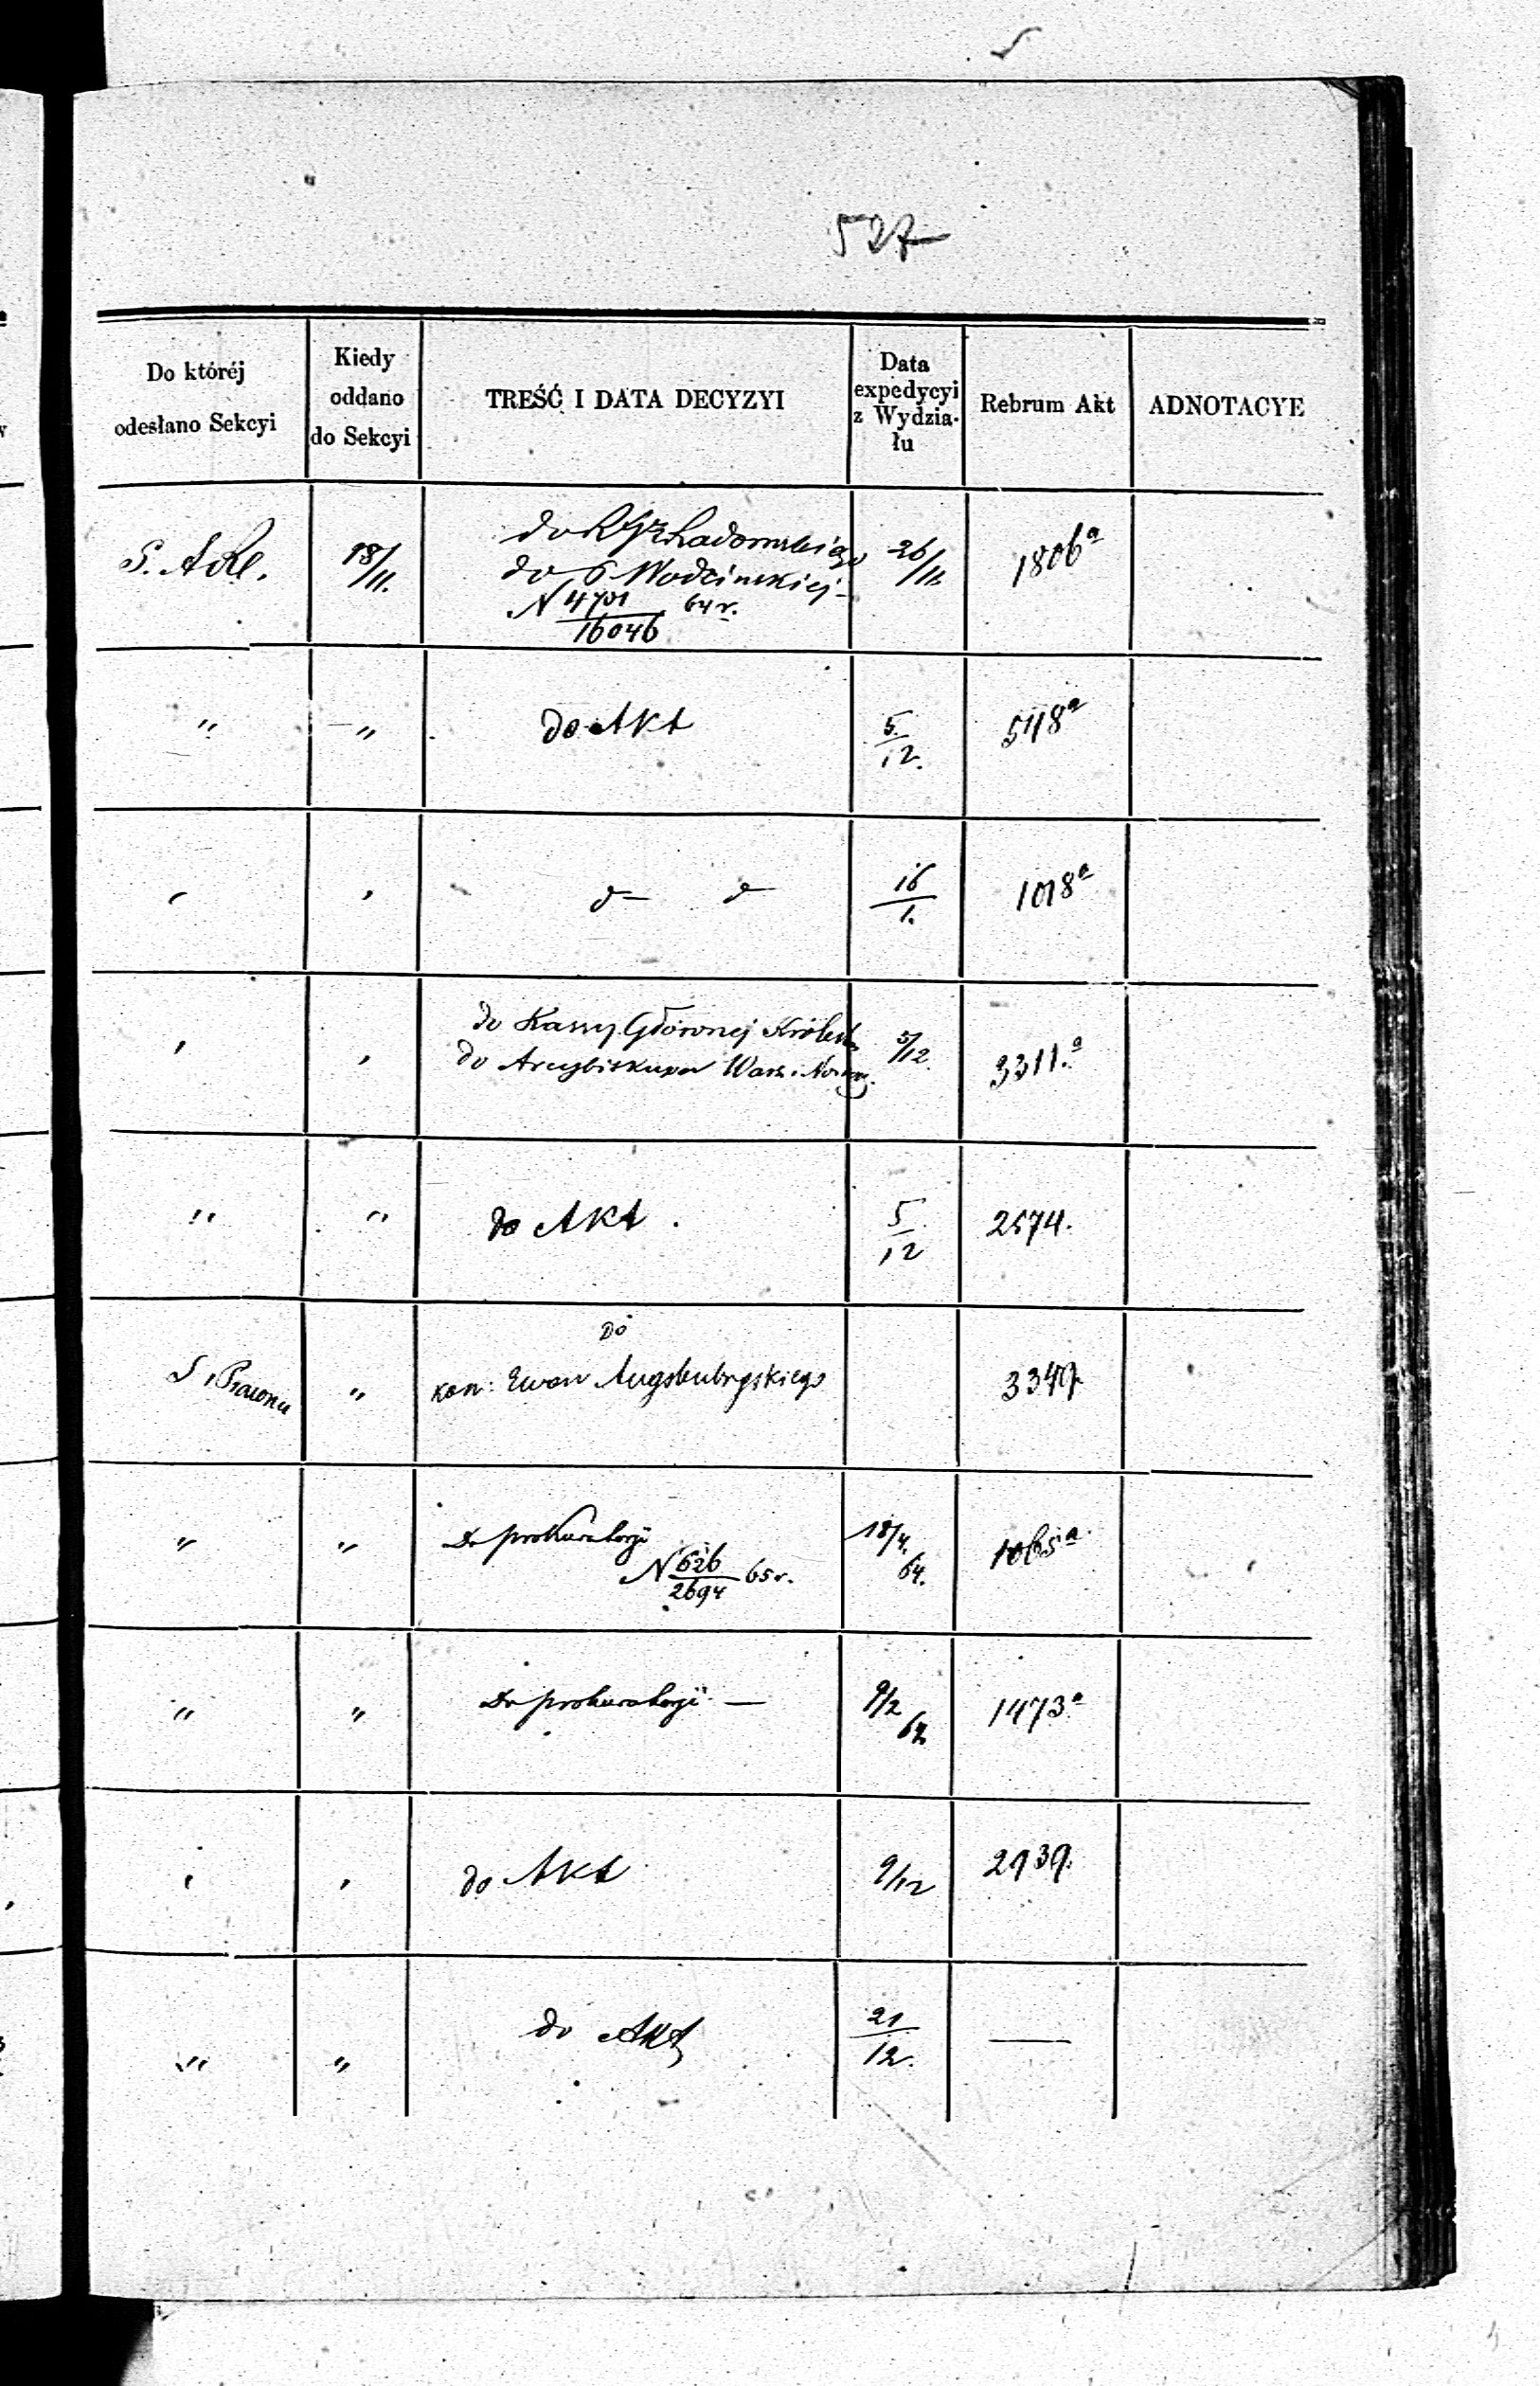 527
Do któréj
odesłano Sekcyi
Kiedy
oddano
do Sekcyi
TREŚĆ I DATA DECYZYI
Data
expedycyi
z Wydzia-
łu
Rebrum Akt
ADNOTACYE
18/11. do Radomskiego 26/11. 1806a
do
N 4701/16046 64 r.
" " do Akt 5/12. 518a
" " d— d— 16/1. 1018a
" " do Kassy Głównej Królestwa 5/12. 3311.a
do Arcybiskupa Warsz.
" " do Akt. 5/12 2574.
Do
" kon: Ewan Augsburgskiego 3349
" " Do prokuratorji 18/4. 64. 1065a
N 626/2694 65 r.
" " Do prokuratorji — 9/2 64. 1473a
" " do Akt 9/12 2939.
" " do Akt 21/12. —